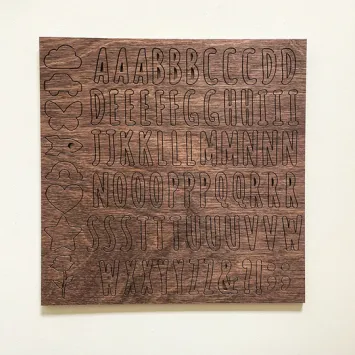 AAABBBCCCDD
DEEEFFGGHHIII
JJKKLLLMMNNN
NOOOPPPQQRRR
SSSTTTUUUVVW
WXXYYZZ&?!SS